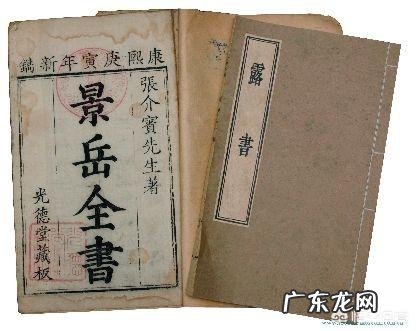 康熙庚寅年新鐫
張介賓先生著
景岳全書
光德堂藏板
露書
广东龙网